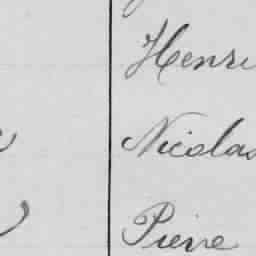 Henri
Nicolas
Pierre